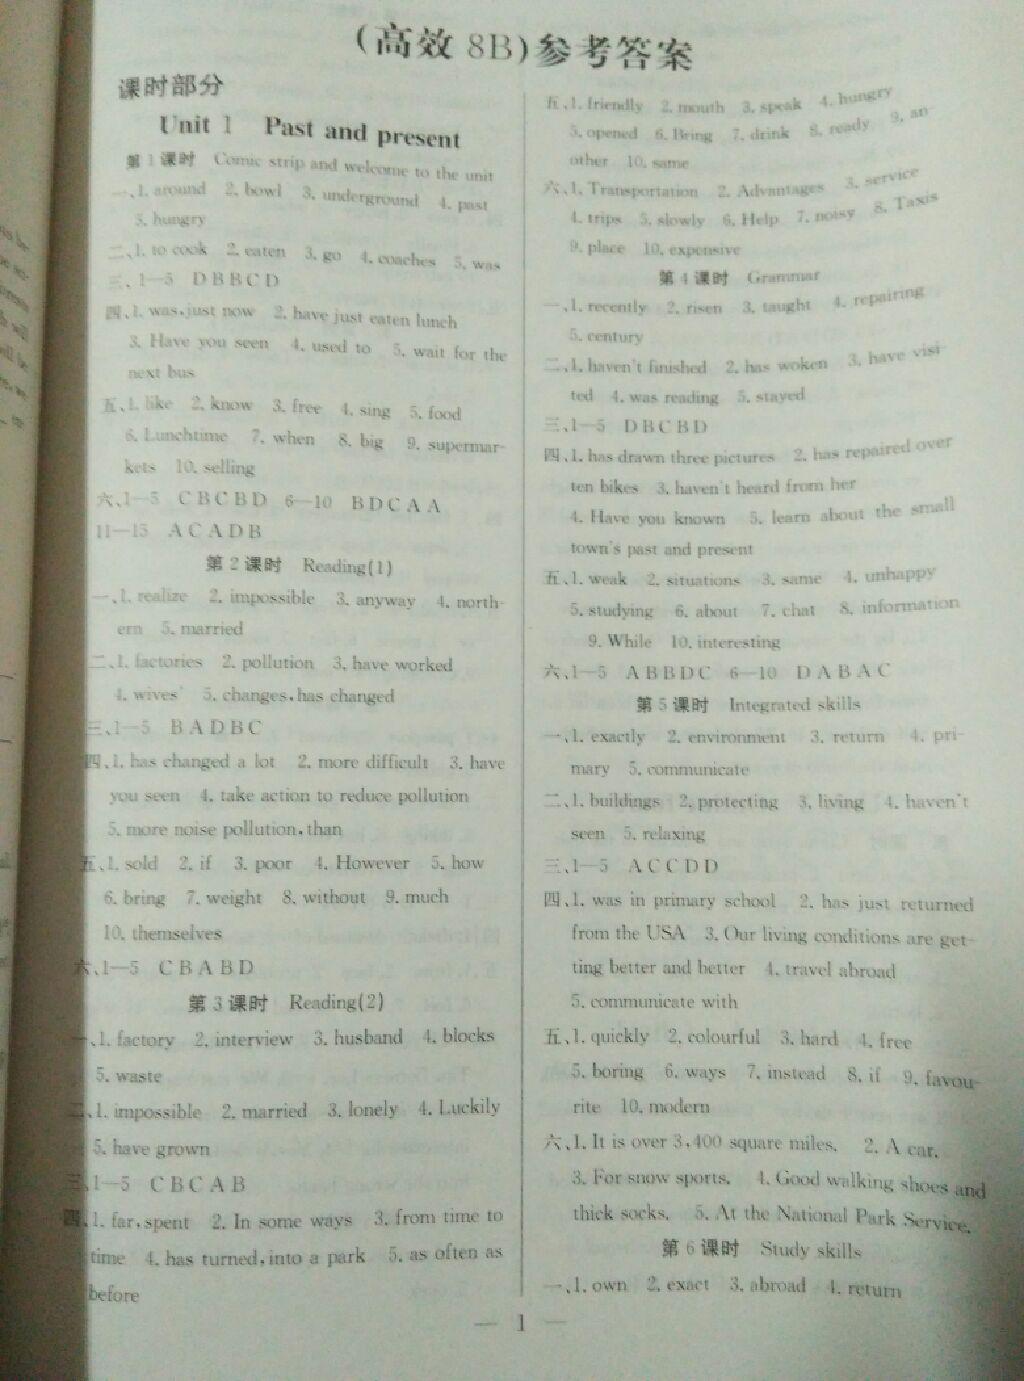 (高效 8B)参考答案
课时部分
Unit 1 Past and present
第1课时 Comic strip and welcome to the unit
一、1. around 2. bowl 3. underground 4. past
5. hungry
二、1. to cook 2. eaten 3. go 4. coaches 5. was
三、1—5 D B B C D
四、1. was,just now 2. have just eaten lunch
3. Have you seen 4. used to 5. wait for the
next bus
五、1. like 2. know 3. free 4. sing 5. food
6. Lunchtime 7. when 8. big 9. supermar-
kets 10. selling
六、1—5 C B C B D 6—10 B D C A A
11—15 A C A D B
第2课时 Reading(1)
一、1. realize 2. impossible 3. anyway 4. north-
ern 5. married
二、1. factories 2. pollution 3. have worked
4. wives' 5. changes,has changed
三、1—5 B A D B C
四、1. has changed a lot 2. more difficult 3. have
you seen 4. take action to reduce pollution
5. more noise pollution,than
五、1. sold 2. if 3. poor 4. However 5. how
6. bring 7. weight 8. without 9. much
10. themselves
六、1—5 C B A B D
第3课时 Reading(2)
一、1. factory 2. interview 3. husband 4. blocks
5. waste
二、1. impossible 2. married 3. lonely 4. Luckily
5. have grown
三、1—5 C B C A B
四、1. far,spent 2. In some ways 3. from time to
time 4. has turned,into a park 5. as often as
before
五、1. friendly 2. mouth 3. speak 4. hungry
5. opened 6. Bring 7. drink 8. ready 9. an-
other 10. same
六、1. Transportation 2. Advantages 3. service
4. trips 5. slowly 6. Help 7. noisy 8. Taxis
9. place 10. expensive
第4课时 Grammar
一、1. recently 2. risen 3. taught 4. repairing
5. century
二、1. haven't finished 2. has woken 3. have visi-
ted 4. was reading 5. stayed
三、1—5 D B C B D
四、1. has drawn three pictures 2. has repaired over
ten bikes 3. haven't heard from her
4. Have you known 5. learn about the small
town's past and present
五、1. weak 2. situations 3. same 4. unhappy
5. studying 6. about 7. chat 8. information
9. While 10. interesting
六、1—5 A B B D C 6—10 D A B A C
第5课时 Integrated skills
一、1. exactly 2. environment 3. return 4. pri-
mary 5. communicate
二、1. buildings 2. protecting 3. living 4. haven't
seen 5. relaxing
三、1—5 A C C D D
四、1. was in primary school 2. has just returned
from the USA 3. Our living conditions are get-
ting better and better 4. travel abroad
5. communicate with
五、1. quickly 2. colourful 3. hard 4. free
5. boring 6. ways 7. instead 8. if 9. favou-
rite 10. modern
六、1. It is over 3,400 square miles. 2. A car.
3. For snow sports. 4. Good walking shoes and
thick socks. 5. At the National Park Service.
第6课时 Study skills
一、1. own 2. exact 3. abroad 4. return
— 1 —